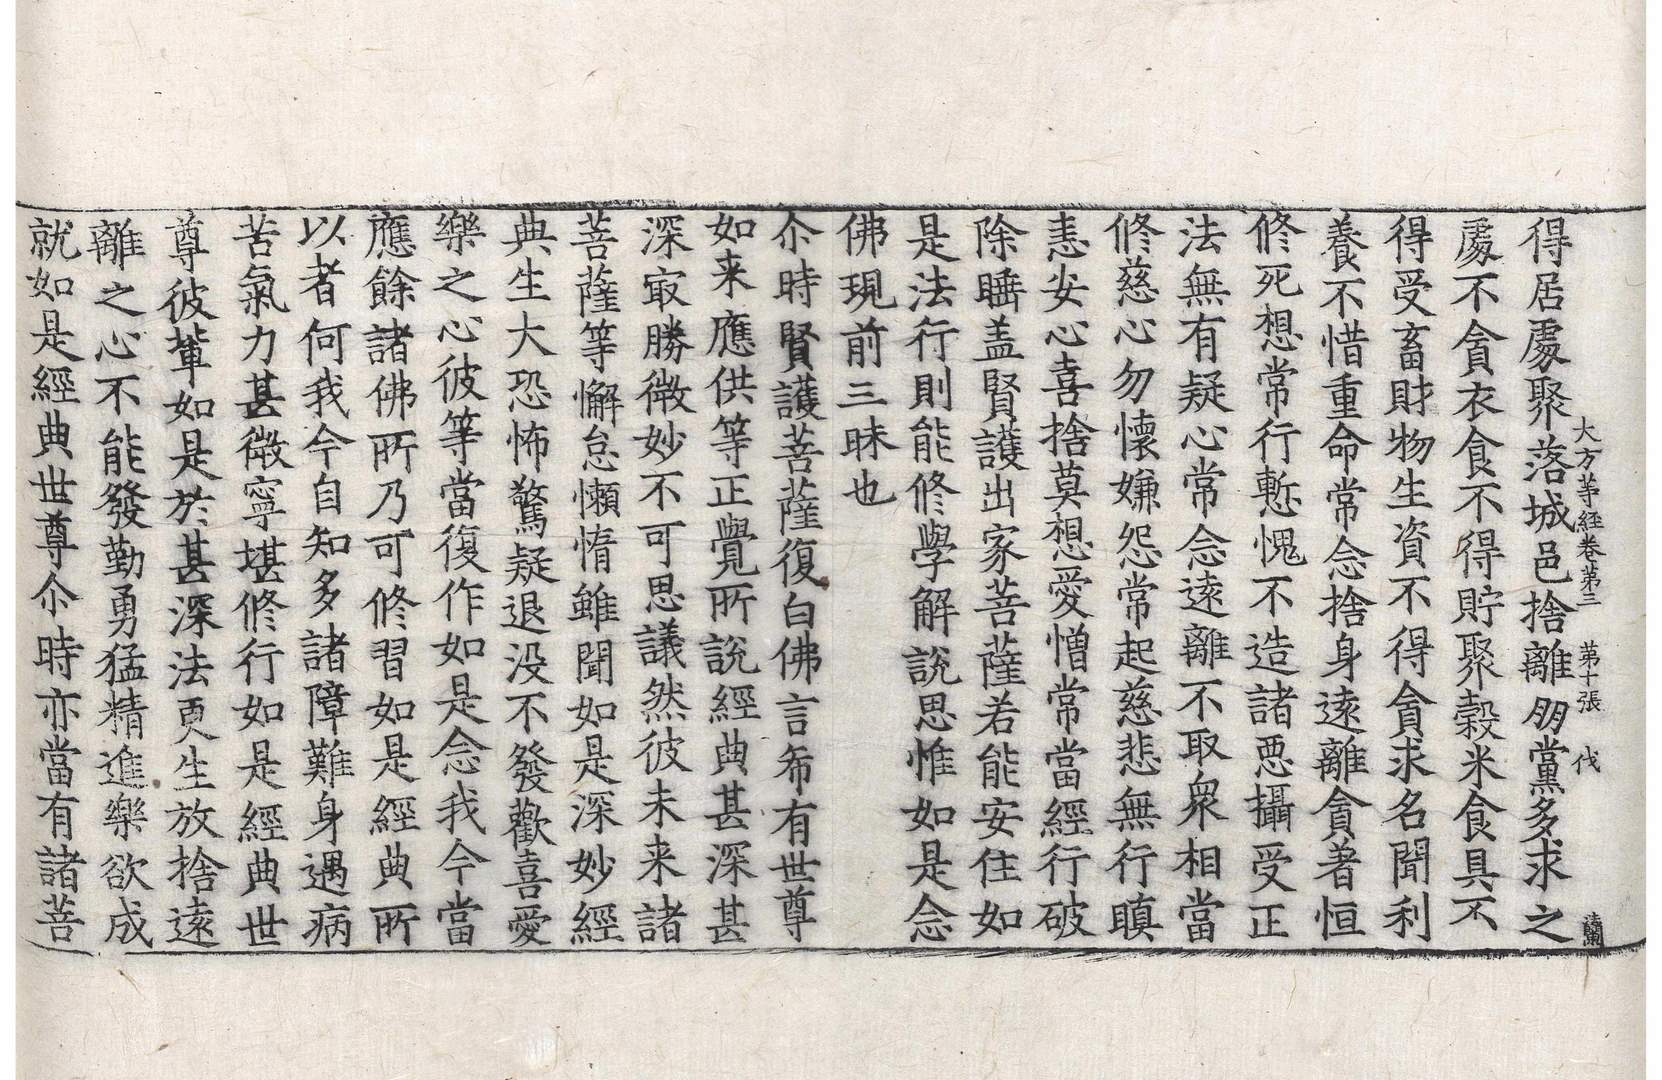 大方等経巻苐三　苐十張　伐
得居處聚落城邑捨離朋黨多求之
處不貪衣食不得貯聚穀米食具不
得受畜財物生資不得貪求名聞利
養不惜重命常念捨身遠離貪著恒
修死想常行慙愧不造諸惡攝受正
法無有疑心常念遠離不取衆相當
修慈心勿懷嫌怨常起慈悲無行瞋
恚安心喜捨莫想愛憎常當經行破
除睡盖賢護出家菩薩若能安住如
是法行則能修學解說思惟如是念
佛現前三昧也
尒時賢護菩薩復白佛言希有世尊
如来應供等正覺所說經典甚深甚
深㝡勝微妙不可思議然彼未来諸
菩薩等懈怠懶惰雖聞如是深妙經
典生大恐怖驚疑退没不發歡喜愛
樂之心彼等當復作如是念我今當
應餘諸佛所乃可修習如是經典所
以者何我今自知多諸障難身遇病
苦氣力甚微寧堪修行如是經典世
尊彼輩如是於甚深法更生放捨遠
離之心不能發勤勇猛精進樂欲成
就如是經典世尊尒時亦當有諸菩